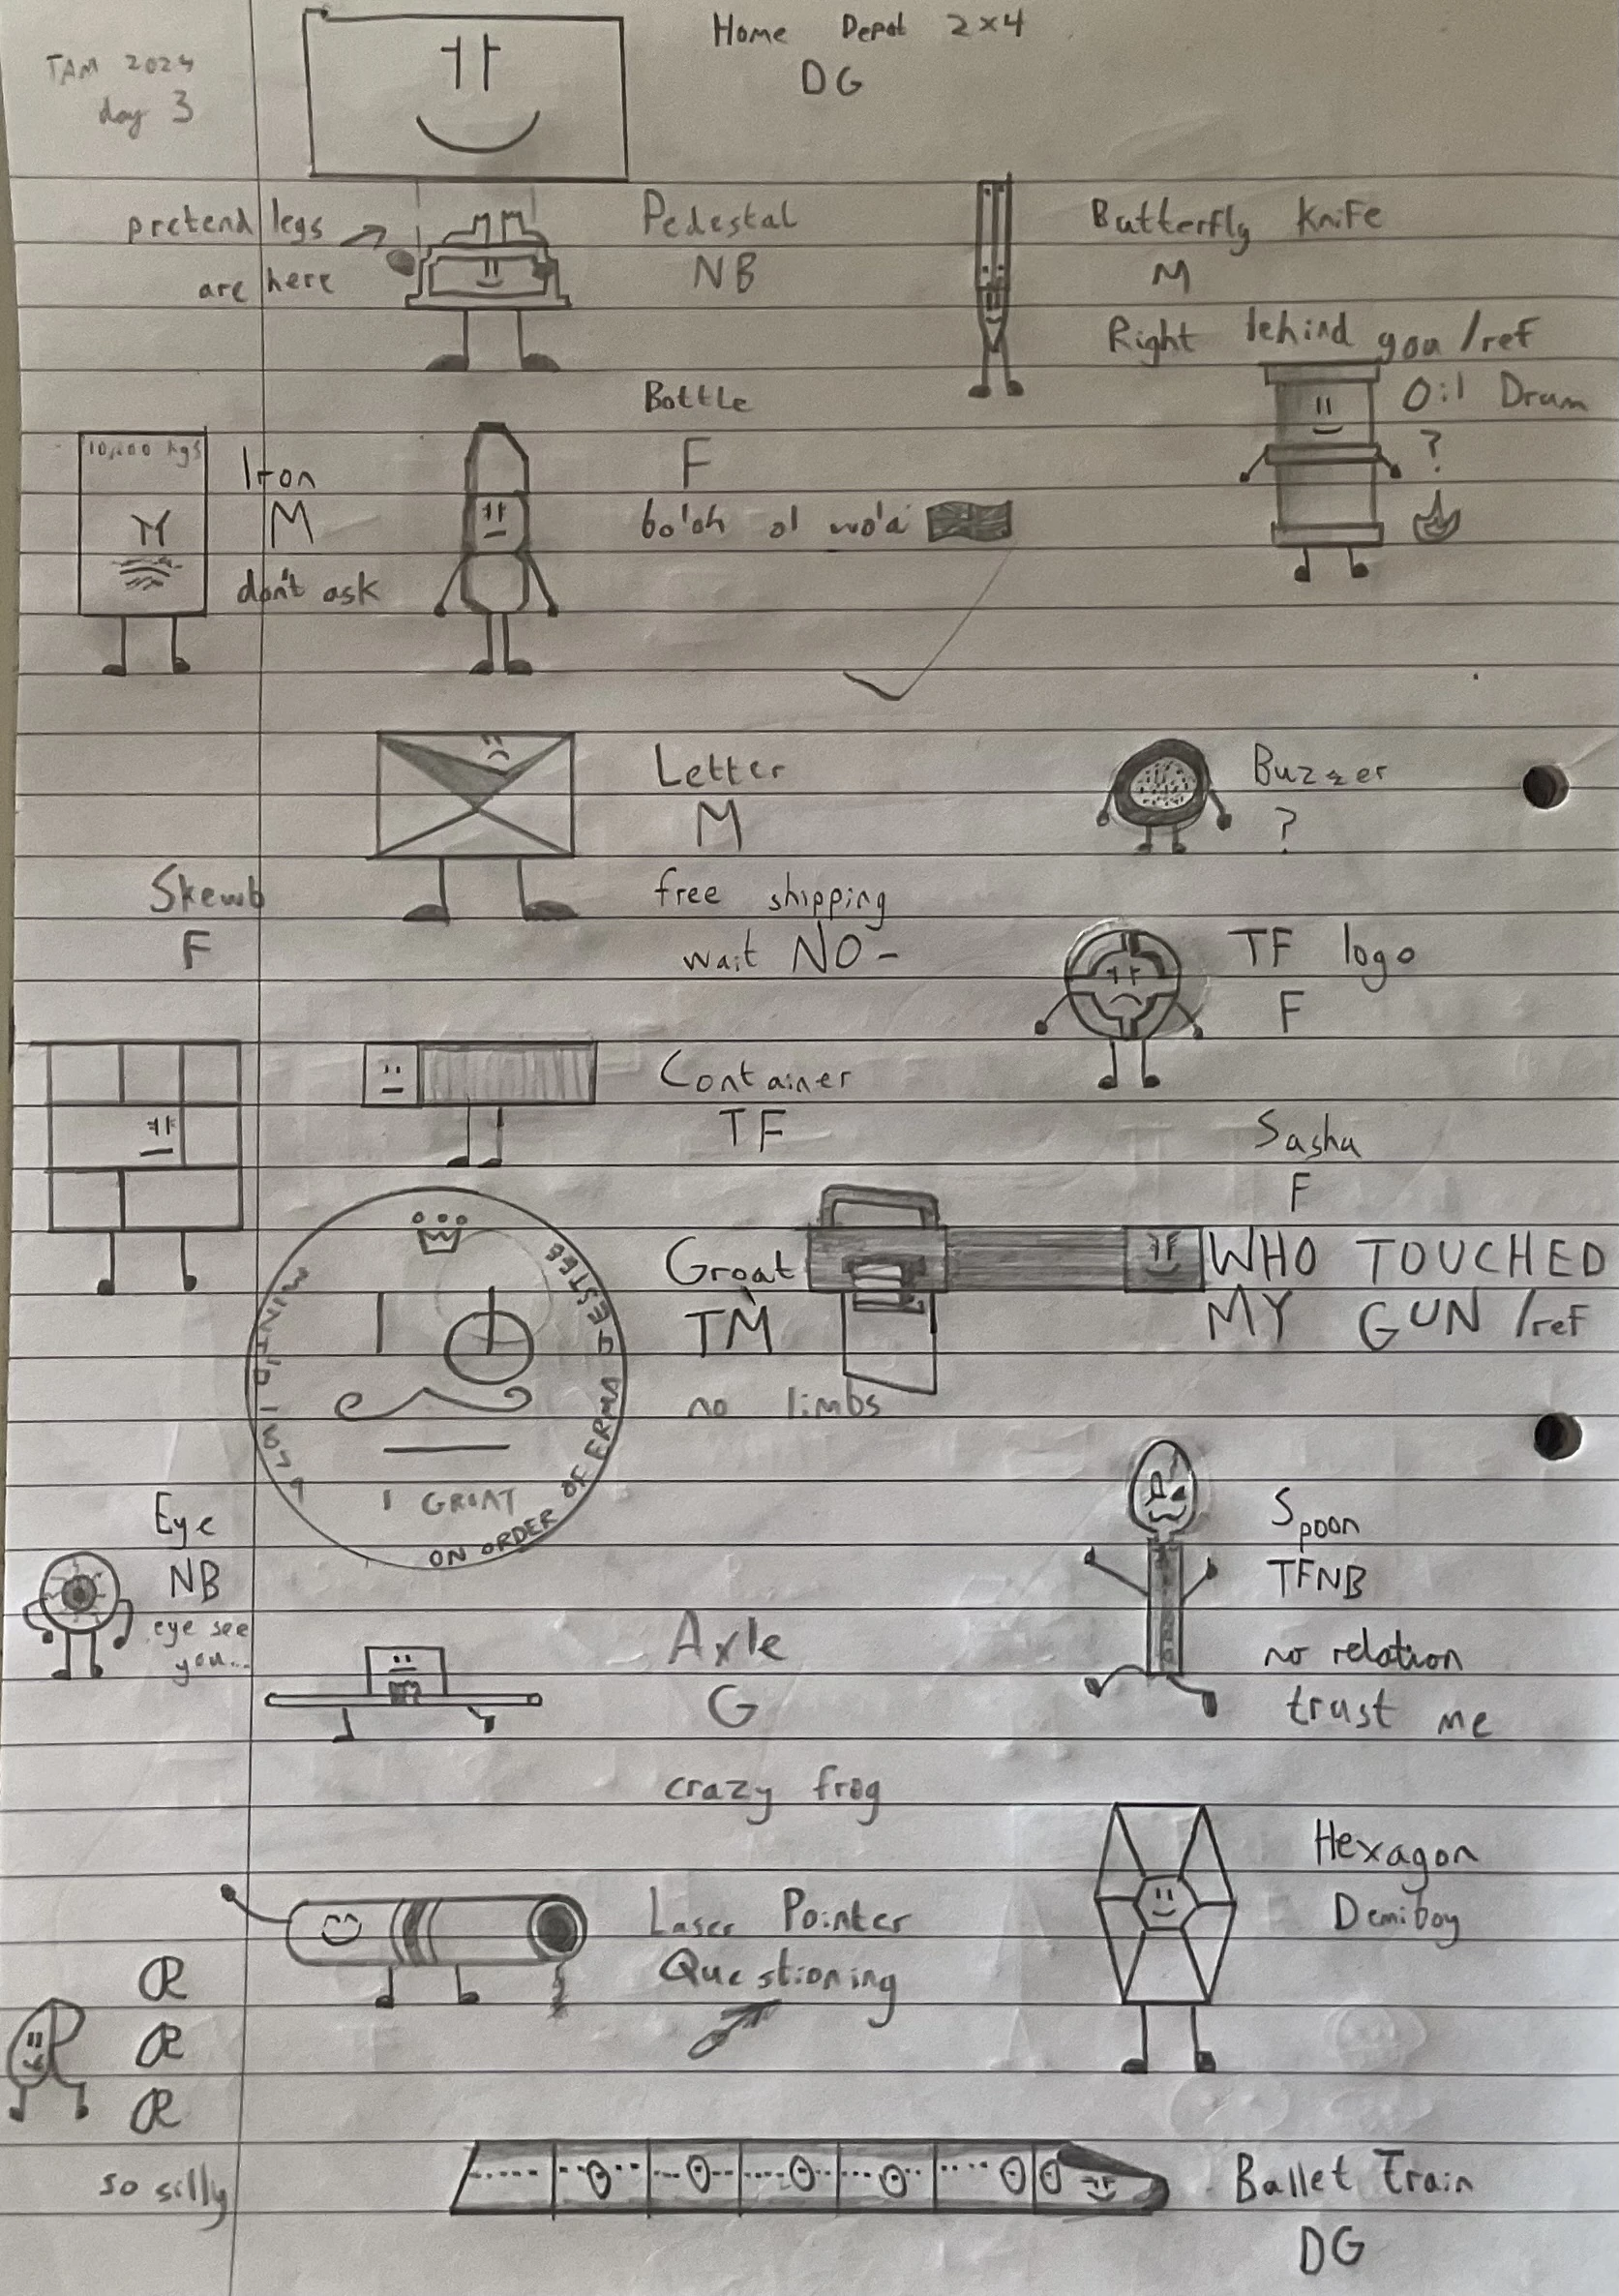 TAM 2024
day 3
Home Depot 2x4
DG
pretend legs
are here
Pedestal
NB
Butterfly Knife
M
Right behind you /ref
Oil Drum
?
10,000 kgs
Iron
M
don't ask
Bottle
F
bo'oh o' wo'a
Letter
M
free shipping
wait NO-
Buzzer
?
Skewb
F
TF logo
F
Container
TF
Sasha
F
WHO TOUCHED
MY GUN /ref
Groat
TM
no limbs
1 GROAT
ON ORDER OF
Eye
NB
eye see
you...
Spoon
TFNB
no relation
trust me
Axle
G
crazy frog
Hexagon
Demiboy
Laser Pointer
Questioning
R
R
R
so silly
Ballet Train
DG